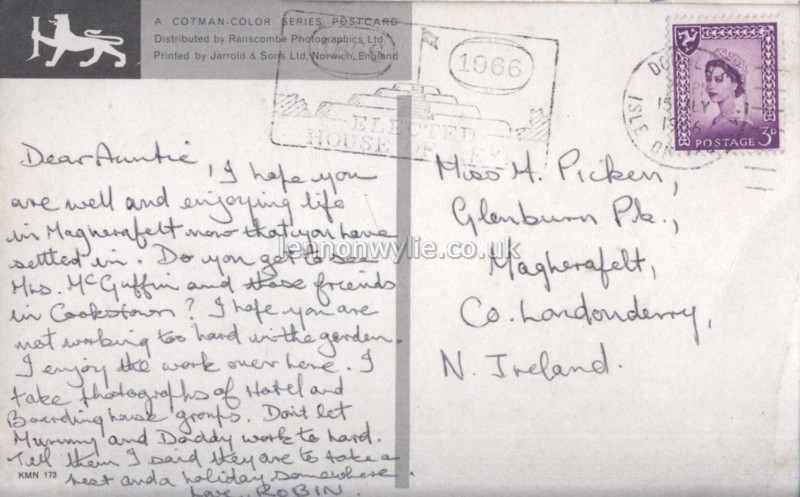 A COTMAN-COLOR SERIES POSTCARD
Distributed by Ranscombe Photographics Ltd.
Printed by Jarrold & Sons Ltd, Norwich, England
1866
1966
ELECTED
HOUSE OF KEYS
ISLE OF MAN
15 JLY
POSTAGE 3D
Dear Auntie,
I hope you
are well and enjoying life
in Magherafelt now that you have
settled in. Do you get to see
Mrs. McGuffin and those friends
in Cookstown? I hope you are
not working too hard in the garden.
I enjoy the work over here. I
take photographs of Hotel and
Boarding house groups. Don't let
Mummy and Daddy work to hard.
Tell them I said they are to take a
rest and a holiday somewhere.
Love, ROBIN.
KMN 173
Miss H. Picken,
Glenburn Pk.,
Magherafelt,
Co. Londonderry,
N. Ireland.
lennonwylie.co.uk